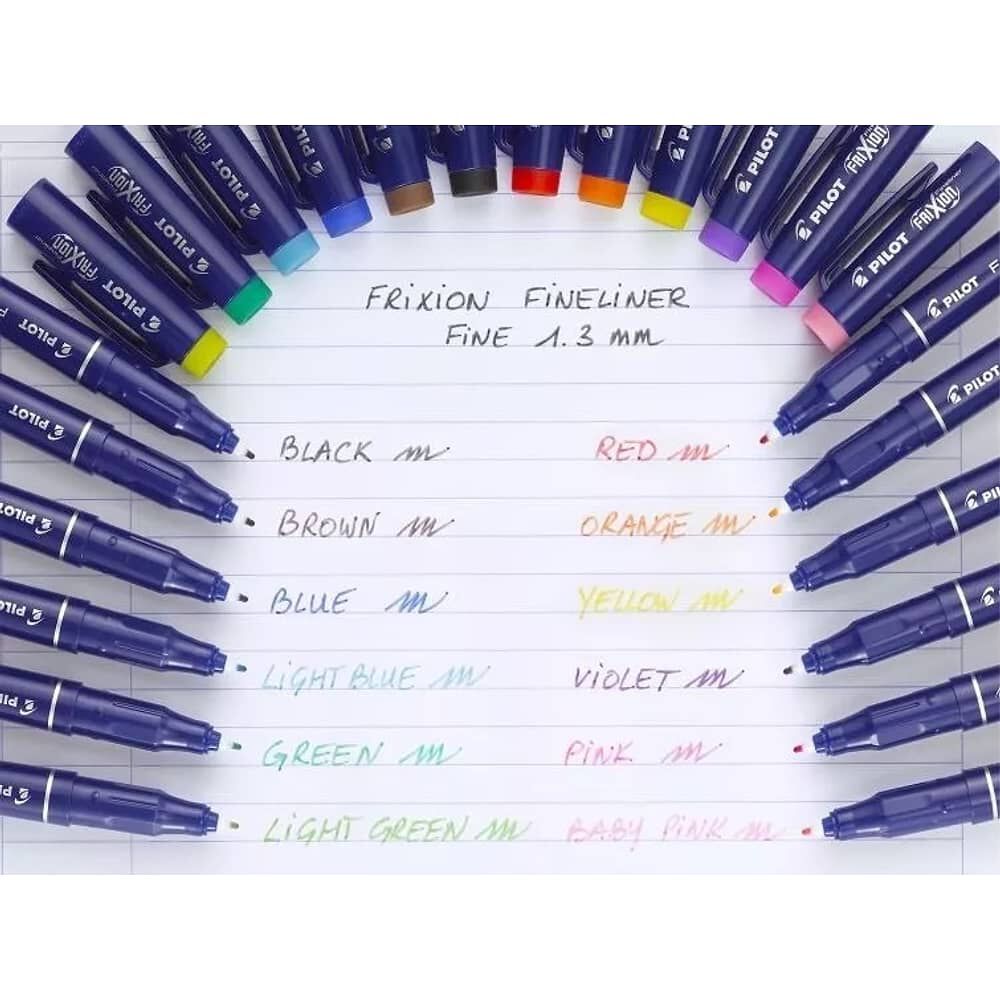 FRIXION FINELINER
FINE 1.3 mm
BLACK
RED
BROWN
ORANGE
BLUE
YELLOW
LIGHT BLUE
VIOLET
GREEN
PINK
LIGHT GREEN
BABY PINK
PILOT FRIXION
PILOT FRIXION
PILOT
PILOT
PILOT
PILOT
PILOT FRIXION
PILOT FRIXION
PILOT
PILOT
PILOT
PILOT
PILOT